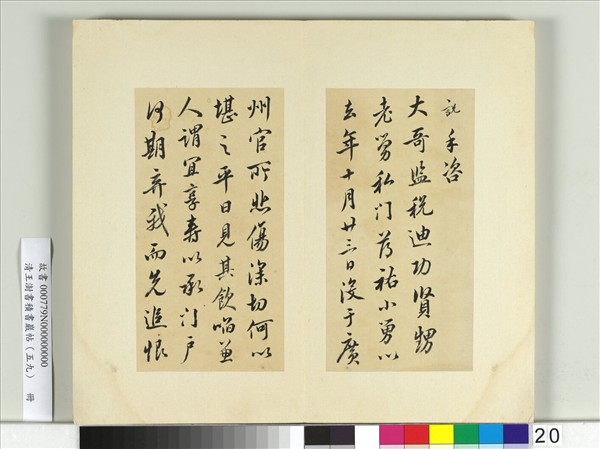 説手咨
大哥監税迪功賢甥
老舅私门薄祐小男以
去年十月廿三日没于廣
州官所悲傷深切何以
堪之平日見其飲啗兼
人謂宜享壽以承门户
何期弃我而先追恨
故書 000779N000000000
清王澍書積書巖帖（五九） 冊
20